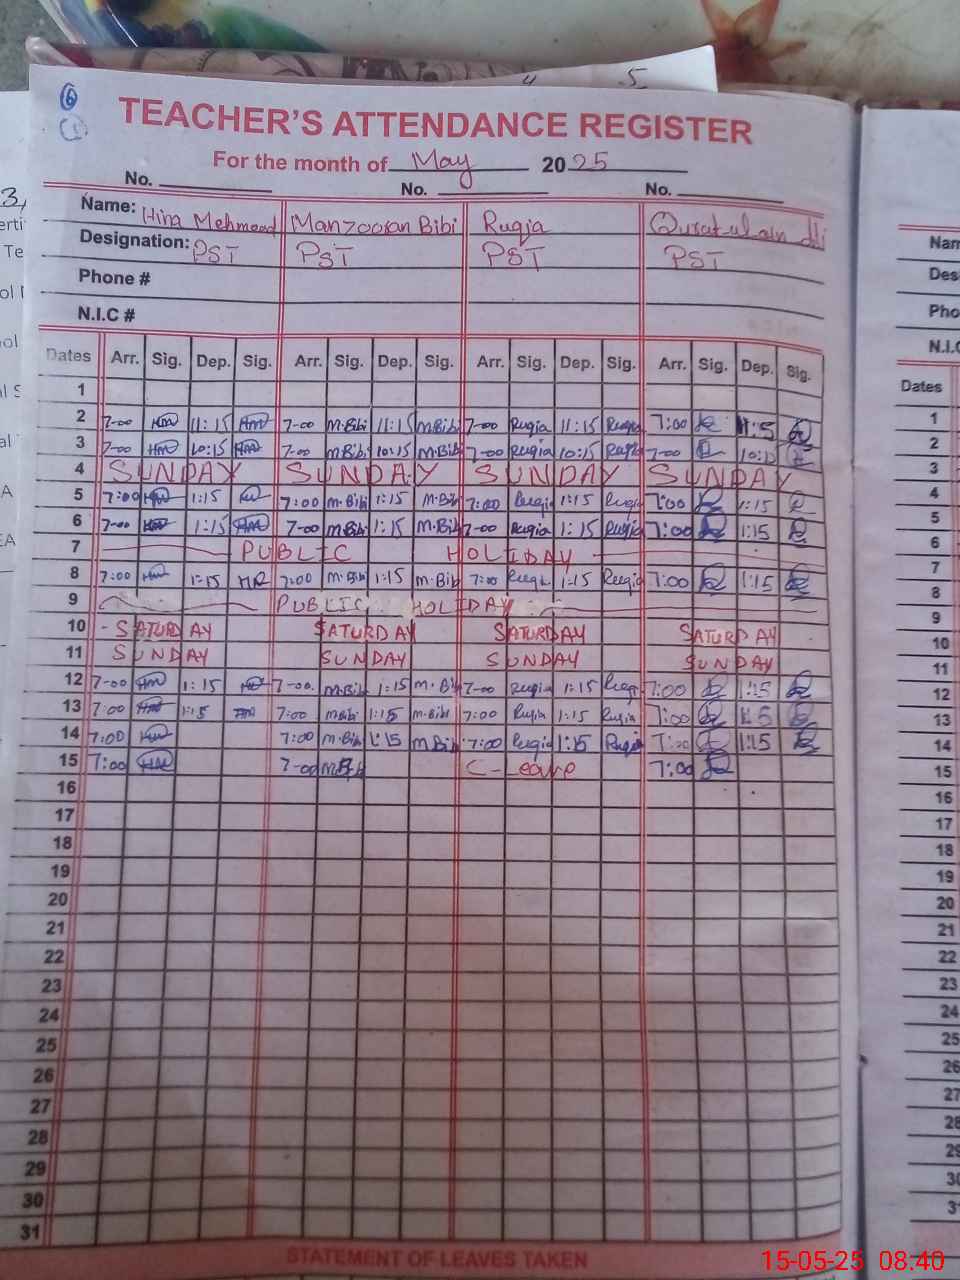 5
TEACHER'S ATTENDANCE REGISTER
For the month of May 2025
No. No. No.
Name: Hira Mehmood Manzooran Bibi Ruqia Quratulain
Designation: PST PST PST PST
Phone #
N.I.C #
Dates Arr. Sig. Dep. Sig. Arr. Sig. Dep. Sig. Arr. Sig. Dep. Sig. Arr. Sig. Dep. Sig.
1
2 7-00 HM 11:15 HM 7-00 M.Bibi 11:15 M.Bibi 7-00 Ruqia 11:15 Ruqia 7:00
3 7-00 HM 10:15 HM 7-00 M.Bibi 10:15 M.Bib 7-00 Ruqia 10:15 7-00
4 SUNDAY SUNDAY SUNDAY SUNDAY
5 7:00 HM 1:15 7:00 M.Bibi 1:15 M.Bib 7:00 Ruqia 1:15 Ruqia 7:00 1:15
6 7-00 HM 1:15 HM 7-00 M.Bibi 1:15 M.Bib 7-00 Ruqia 1:15 Ruqia 7:00 1:15
7 PUBLIC HOLIDAY
8 7:00 HM 1:15 HR 7:00 M.Bibi 1:15 M.Bib 7:00 1:15 Ruqia 7:00 1:15
9 PUBLIC HOLIDAY
10 SATURDAY SATURDAY SATURDAY SATURDAY
11 SUNDAY SUNDAY SUNDAY SUNDAY
12 7-00 HM 1:15 HM 7-00 M.Bibi 1:15 M.Bi 7-00 Ruqia 1:15 Ruqia 7:00 1:15
13 7:00 HM 1:15 HM 7:00 MBibi 1:15 M.Bibi 7:00 Ruqia 1:15 Ruqia 7:00 1:15
14 7:00 HM 7:00 M.Bibi 1:15 M Bibi 7:00 Ruqia 1:15 Ruqia 7:00 1:15
15 7:00 HM 7-00 M.Bib C-Leave 7:00
16
17
18
19
20
21
22
23
24
25
26
27
28
29
30
31
STATEMENT OF LEAVES TAKEN
Nam
Des
Pho
N.I.C
Dates
1
2
3
4
5
6
7
8
9
10
11
12
13
14
15
16
17
18
19
20
21
22
23
24
25
26
27
28
29
30
15-05-25 08:40